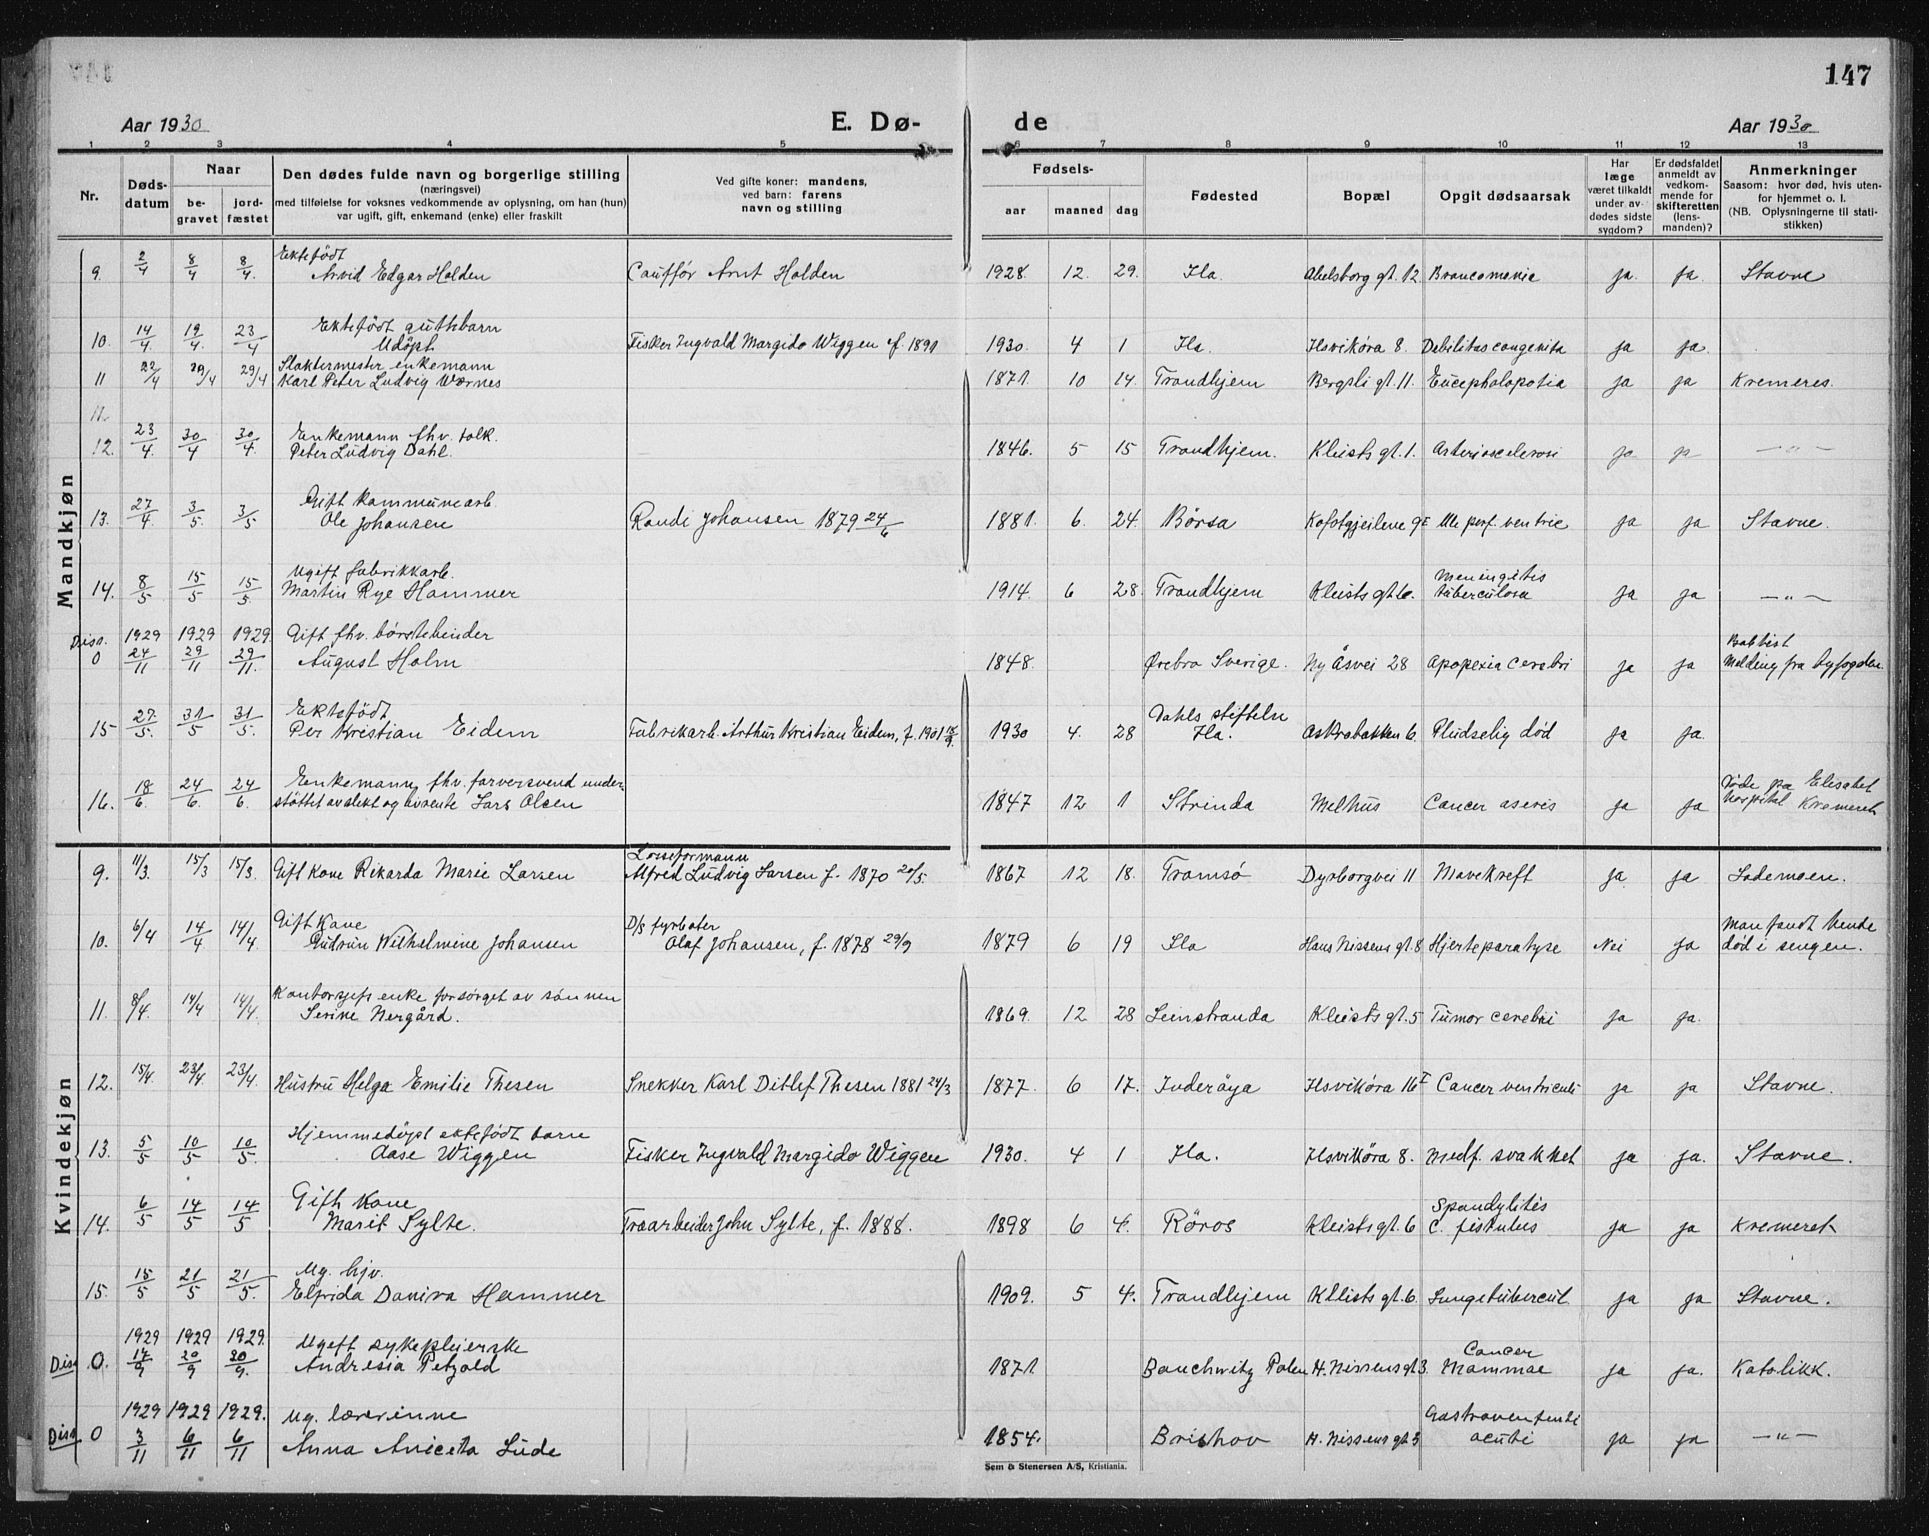 147
Aar 1930 E. Dø- de Aar 1930
1 2 3 4 5 6 7 8 9 10 11 12 13
Nr. Døds-datum Naar be-gravet jord-fæstet
Den dødes fulde navn og borgerlige stilling
(næringsvei)
med tilføielse for voksnes vedkommende av oplysning, om han (hun)
var ugift, gift, enkemand (enke) eller fraskilt
Ved gifte koner: mandens,
ved barn: farens
navn og stilling
Fødsels- aar maaned dag
Fødested
Bopæl
Opgit dødsaarsak
Har læge været tilkaldt under av-dødes sidste sygdom?
Er dødsfaldet anmeldt av vedkom-mende for skifteretten (lens-manden)?
Anmerkninger
Saasom: hvor død, hvis uten-
for hjemmet o. l.
(NB. Oplysningerne til stati-
stikken)
Mandkjøn
Ektefödt
9. 2/4 8/4 8/4. Arvid Edgar Holden Caufför Arnt Holden 1928. 12. 29. Ila. Abelsborg gt. 12. ja ja. Stavne
Ektefödt guttebarn
10. 14/4. 19/4. 23/4 Udöpt Fisker Ingvald Margido Wiggen f. 1891 1930. 4 1 Ila. Ilsviköra 8. Debilitas congenita ja ja.
Slaktermester enkemann
11 22/4 29/4 29/4 Karl Peter Ludvig Wærnes 1871. 10 14. Trondhjem Bergsli gt. 11. ja ja Kremeres.
11.
Enkemann fhv. tolk.
12. 23/4. 30/4 30/4. Peter Ludvig Dahl. 1846. 5 15 Trondhjem. Kleists gt. 1. ja ja —"—
Gift kommunearb.
13. 27/4. 3/5. 3/5 Ole Johansen Randi Johansen 1879 24/6 1881. 6. 24. Börsa ja ja Stavne.
Ugift fabrikkarb. Meningitis
14. 8/5 15/5 15/5. Martin Rye Hammer 1914. 6 28. Trondhjem Kleists gt. 6. tuberculosa ja ja —"—
Diss. 1929 1929 1929. Gift fhv. börstebinder
0 24/11 29/11 29/11. August Holm 1848. Örebro Sverige. Ny Åsvei 28 Apopexia cerebri ja ja Melding fra byfogden.
Ektefödt Dahls stiftelse
15 27/5. 31/5 31/5. Per Kristian Eidem Fabrikarb. Arthur Kristian Eidem, f. 1901 1930 4. 28 Ila. Pludselig död ja ja.
Enkemann, fhv. farversvend under-
16. 18/6. 24/6. 24/6. stöttet av slekt og livrente Lars Olsen 1847 12 1 Strinda Melhus Cancer ja ja
Döde pa Elisabet
hospital Kremeret
Kvindekjøn
Losseformann
9. 11/3. 15/3 15/3. Gift Kone Rikarda Marie Larsen Alfred Ludvig Larsen f. 1870 20/5. 1867 12 18. Tromsö Dyrborgvei 11 Mavekreft ja ja Lademoen.
Gift Kone D/s fyrböter Man fandt hende
10. 6/4 14/4 14/4. Gudrun Wilhelmine Johansen Olaf Johansen, f. 1878 29/9 1879 6 19 Ila Hans Nissens gt. 8 Hjerteparalyse Nei ja död i sengen.
Kontorsjefs enke forsörget av sönnen
11. 8/4. 14/4 14/4. Serine Nergård. 1869. 12 28 Leinstranda Kleists gt. 5 Tumor cerebri ja ja.
12. 15/4. 23/4. 23/4. Hustru Helga Emilie Thesen Snekker Karl Ditlef Thesen 1881 24/3 1877. 6 17. Inderöya Ilsviköra 16 I Cancer ventriculi ja ja Stavne.
Hjemmedöpt ektefödt barn
13. 5/5 10/5 10/5. Aase Wiggen Fisker Ingvald Margido Wiggen 1930. 4 1 Ila. Ilsviköra 8. Medf. svakhet ja ja. Stavne.
Gift Kone Spondylitis
14. 6/5 14/5 14/5 Marit Sylte. Traarbeider John Sylte, f. 1888. 1898 6 4. Röros Kleists gt. 6 C. fistulus ja ja Kremeret
Ug. hjv.
15. 15/5 21/5 21/5. Elfrida Danira Hammer 1909. 5 4. Trondhjem Kleists gt. 6. Lungetubercul. ja ja Stavne.
1929 1929 1929. Ugift sykepleierske Cancer
Diss. 0. 14/9 20/9 20/9. Andresia Petzold 1871. Bauchwitz Polen H. Nissens gt 3. Mammae ja ja. Katolikk.
1929 1929 1929. Ug. lærerinne
Diss. 0 3/11 6/11 6/11 Anna Aniceta Lüde 1854. H. Nissens gt 3 acuti ja ja —"—
Sem & Stenersen A/S, Kristiania.